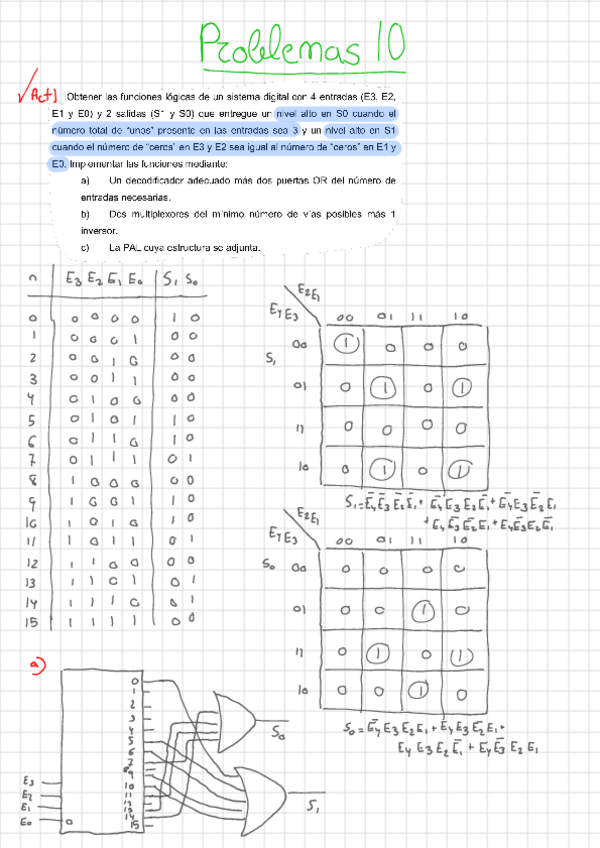 Problemas 10
√ Act1 Obtener las funciones lógicas de un sistema digital con 4 entradas (E3, E2,
E1 y E0) y 2 salidas (S1 y S0) que entregue un nivel alto en S0 cuando el
número total de "unos" presente en las entradas sea 3 y un nivel alto en S1
cuando el número de "ceros" en E3 y E2 sea igual al número de "ceros" en E1 y
E0. Implementar las funciones mediante:
a) Un decodificador adecuado más dos puertas OR del número de
entradas necesarias.
b) Dos multiplexores del mínimo número de vías posibles más 1
inversor.
c) La PAL cuya estructura se adjunta.
n E3 E2 E1 E0 S1 S0
0 0 0 0 0 1 0
1 0 0 0 1 0 0
2 0 0 1 0 0 0
3 0 0 1 1 0 0
4 0 1 0 0 0 0
5 0 1 0 1 1 0
6 0 1 1 0 1 0
7 0 1 1 1 0 1
8 1 0 0 0 0 0
9 1 0 0 1 1 0
10 1 0 1 0 1 0
11 1 0 1 1 0 1
12 1 1 0 0 0 0
13 1 1 0 1 0 1
14 1 1 1 0 0 1
15 1 1 1 1 0 0
E2E1
E4E3
00 01 11 10
S1
00 1 0 0 0
01 0 1 0 1
11 0 0 0 0
10 0 1 0 1
S1=E̅4E̅3E̅2E̅1+E̅4E3E̅2E1+E̅4E3E2E̅1
+E4E̅3E̅2E1+E4E̅3E2E̅1
E2E1
E4E3
00 01 11 10
S0
00 0 0 0 0
01 0 0 1 0
11 0 1 0 1
10 0 0 1 0
S0=E̅4E3E2E1+E4E3E̅2E1+
E4E3E2E̅1+E4E̅3E2E1
a)
0
1
2
3
4
5
6
7
8
9
10
11
12
13
14
15
E3
E2
E1
E0
0
S0
S1